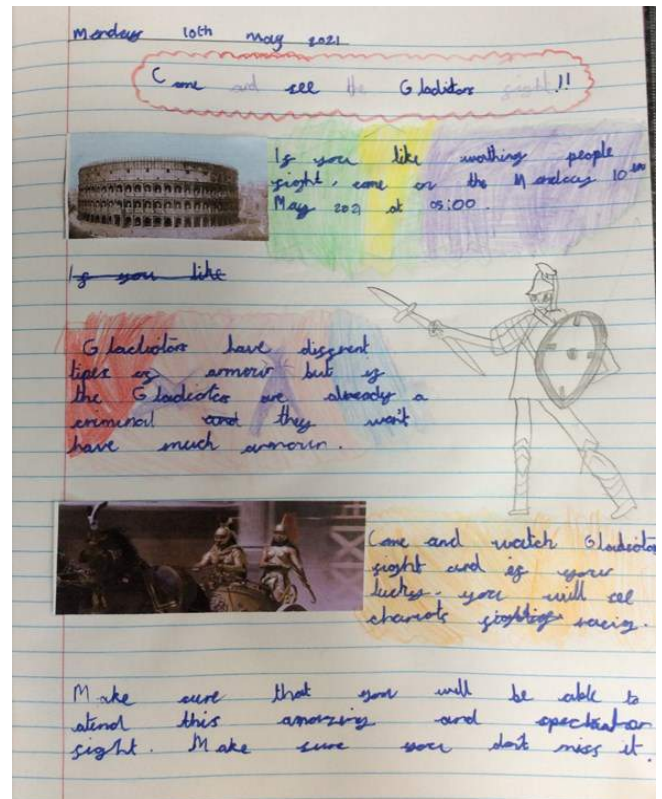 Monday 10th May 2021
Come and see the Gladiators fight!!
If you like wathing people
fight, come on the Monday 10th
May 2021 at 05:00.
If you like
Gladiators have disfrent
tipes of armour but if
the Gladiators are already a
criminal and they won't
have much armour.
Come and watch Gladiators
fight and if your
lucky. you will see
chariots fighting racing.
Make sure that you will be able to
atend this amazing and
fight. Make sure you dont miss it.